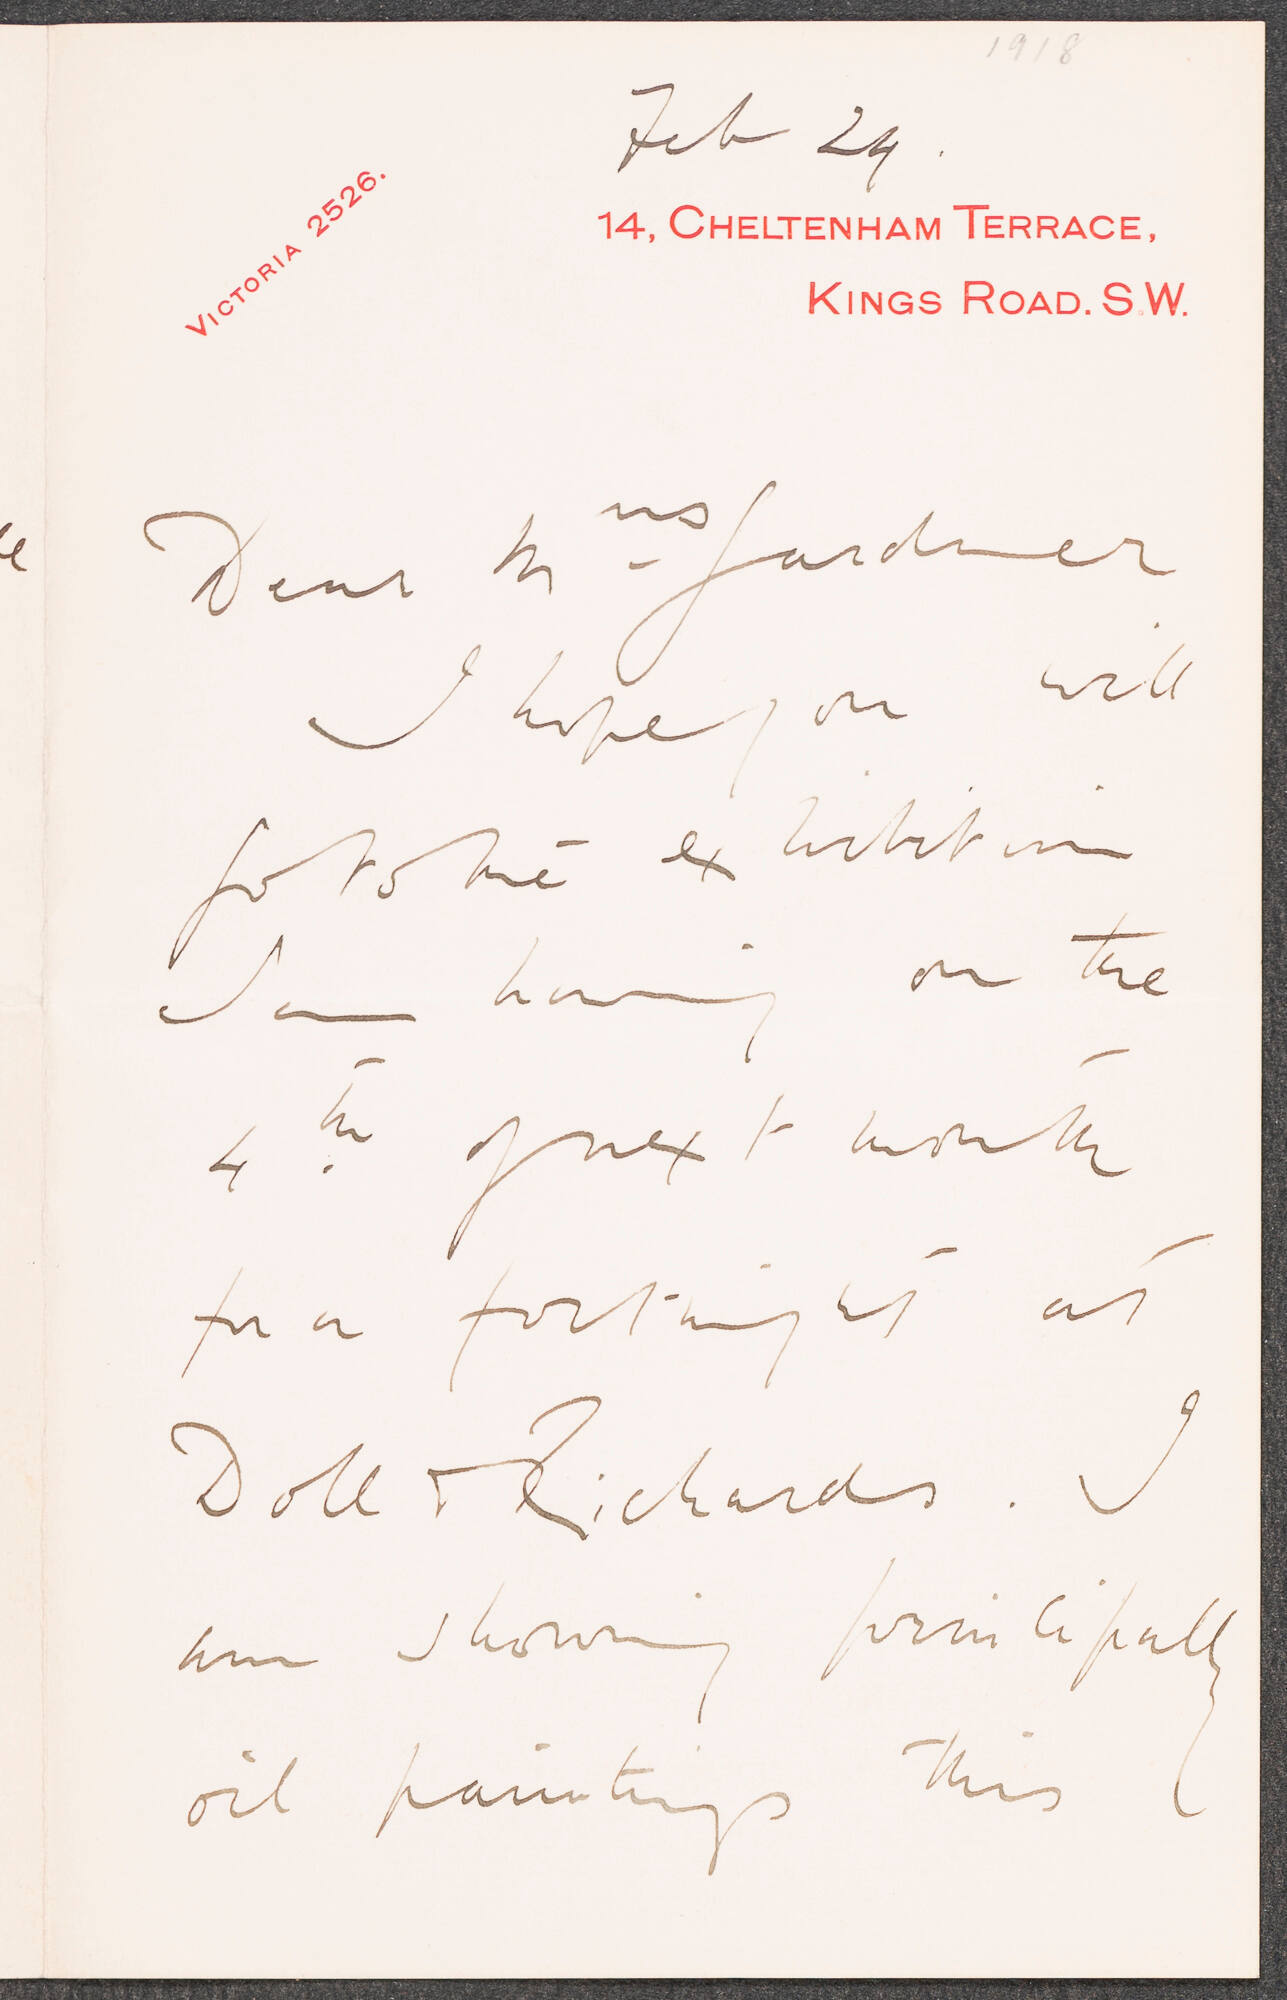 1918
Feb 24.
VICTORIA 2526.
14, CHELTENHAM TERRACE,
KINGS ROAD. S.W.
Dear Mrs Gardner
I hope you will
go to the exhibition
I am having on the
4th of next month
for a fortnight at
Doll & Richards. I
am showing principally
oil paintings this